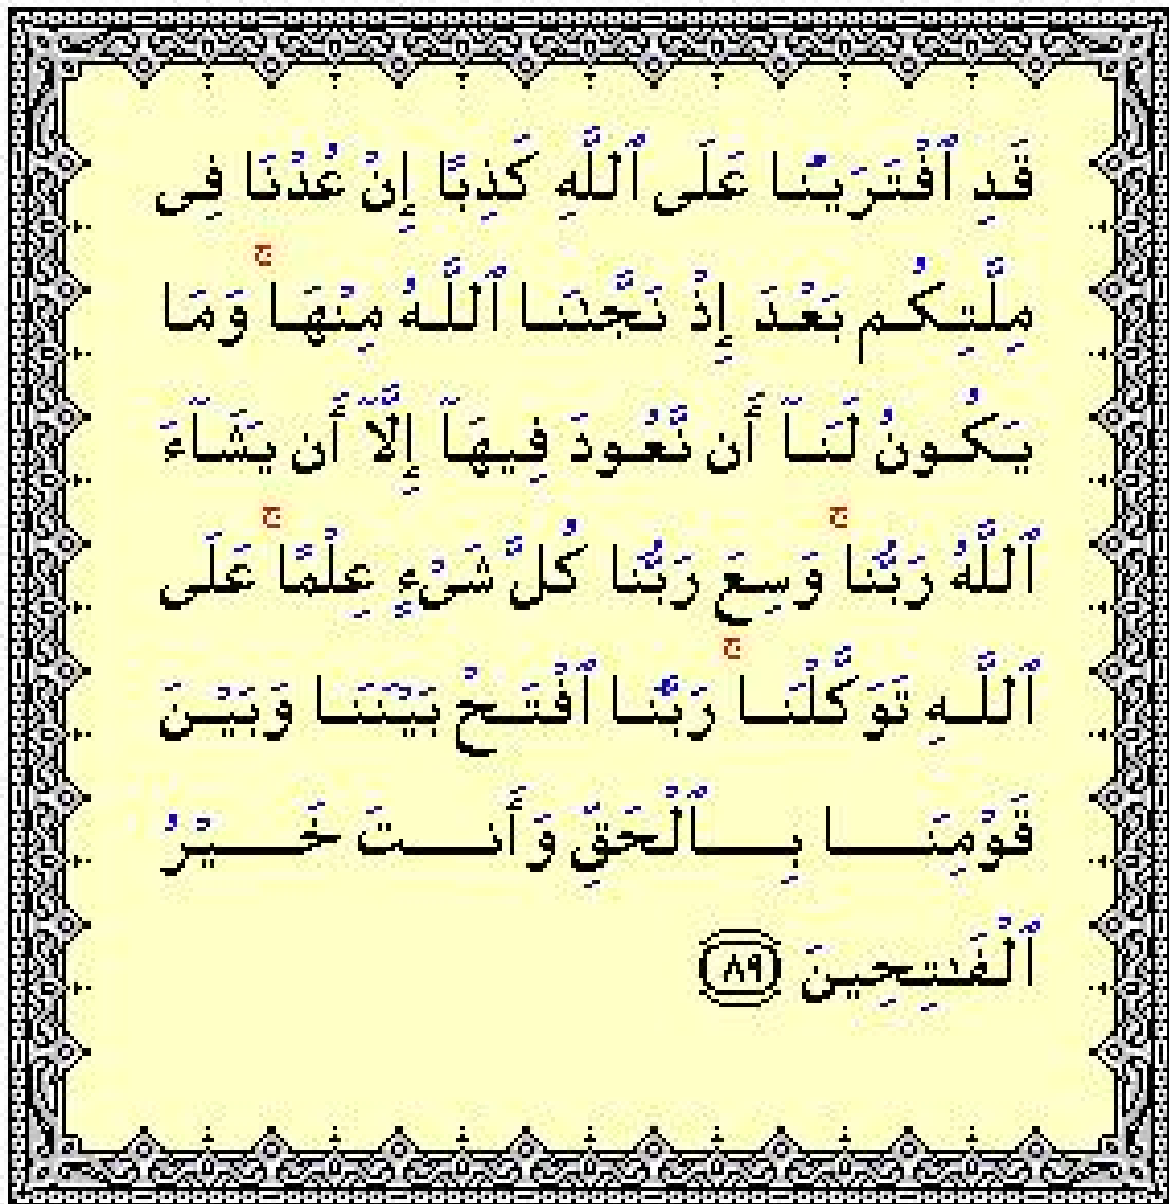 قَدِ ٱفْتَرَيْنَا عَلَى ٱللَّهِ كَذِبًا إِنْ عُدْنَا فِى
مِلَّتِكُم بَعْدَ إِذْ نَجَّىٰنَا ٱللَّهُ مِنْهَا ۚ وَمَا
يَكُونُ لَنَآ أَن نَّعُودَ فِيهَآ إِلَّآ أَن يَشَآءَ
ٱللَّهُ رَبُّنَا ۚ وَسِعَ رَبُّنَا كُلَّ شَىْءٍ عِلْمًا ۚ عَلَى
ٱللَّهِ تَوَكَّلْنَا ۚ رَبَّنَا ٱفْتَحْ بَيْنَنَا وَبَيْنَ
قَوْمِنَا بِٱلْحَقِّ وَأَنتَ خَيْرُ
ٱلْفَـٰتِحِينَ ٨٩